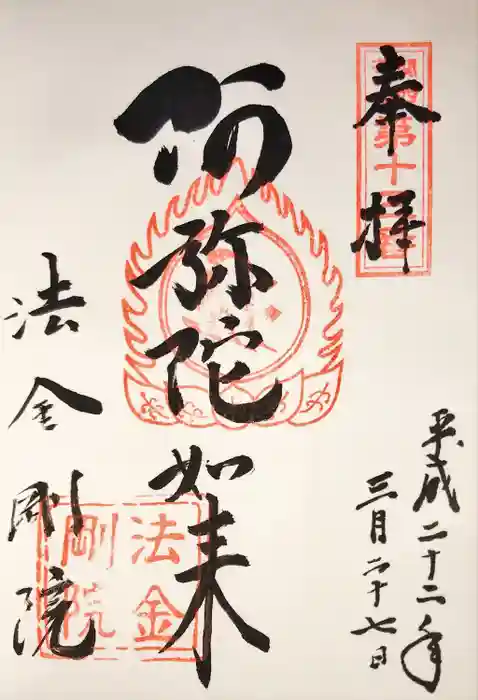 奉拝
平成二十二年
三月二十七日
阿弥陀如来
法金剛院
法金
剛院